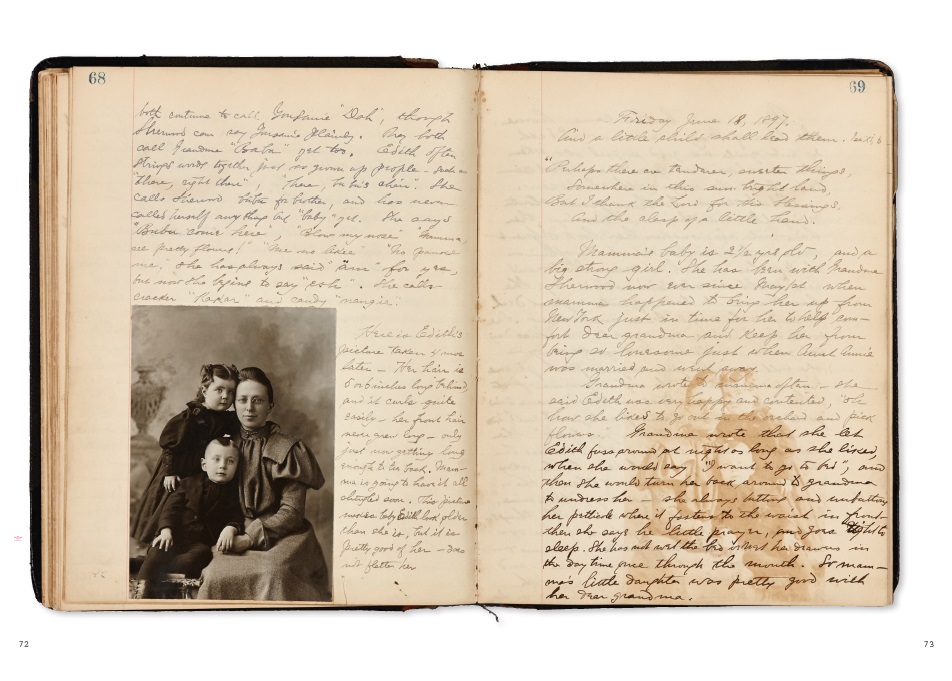 68
both continue to call "Doh", though
Sherwood can say plainly. They both
call Grandma "Baba" yet too. Edith often
strings words together just as grown up people - such as
"there, right there", "there, bubu's chair". She
calls Sherwood bubu for brother, and has never
called herself anything but "baby" yet. She says
"Bubu come here", "Blow my nose" "Mamma,
see pretty flowers!" "Me no likee"
me," She has always said "um" for yes,
but now she tries to say "esh". She calls
cracker "Kakar" and candy "nangie."
Here is Edith's
picture taken 4 mos
later - Her hair is
5 or 6 inches long behind
and it curls quite
easily - her front hair
never grew long - only
just now getting long
enough to tie back. Mam-
ma is going to have it all
shingled soon. This picture
makes baby Edith look older
than she is, but it is
pretty good of her - does
not flatter her
69
Friday June 18, 1897.
And a little child shall lead them.
"Perhaps there are tenderer, sweeter things,
Somewhere in this sun-bright land,
But I thank the Lord for his blessings,
And the clasp of a little hand."
Mamma's baby is 2 1/2 yrs old, and a
big strong girl. She has been with Grandma
Sherwood now ever since May 1st when
mamma happened to bring her up from
New York just in time for her to help com-
fort dear grandma and keep her from
being so lonesome just when Aunt Annie
was married and went away.
Grandma wrote to mamma often - she
said Edith was very happy and contented, "oh
how she liked to go out in the orchard and pick
flowers. Grandma wrote that she let
Edith fuss around at night as long as she liked,
when she would say "I want to go to bed", and
then she would turn her back around to grandma
to undress her - she always buttons and unbuttons
her petticoat where it fastens to the waist in front -
then she says her little prayer, and goes right to
sleep. She has not wet the bed or wet her drawers in
the day time once through the month. So mam-
ma's little daughter was pretty good with
her dear grandma.
72
73